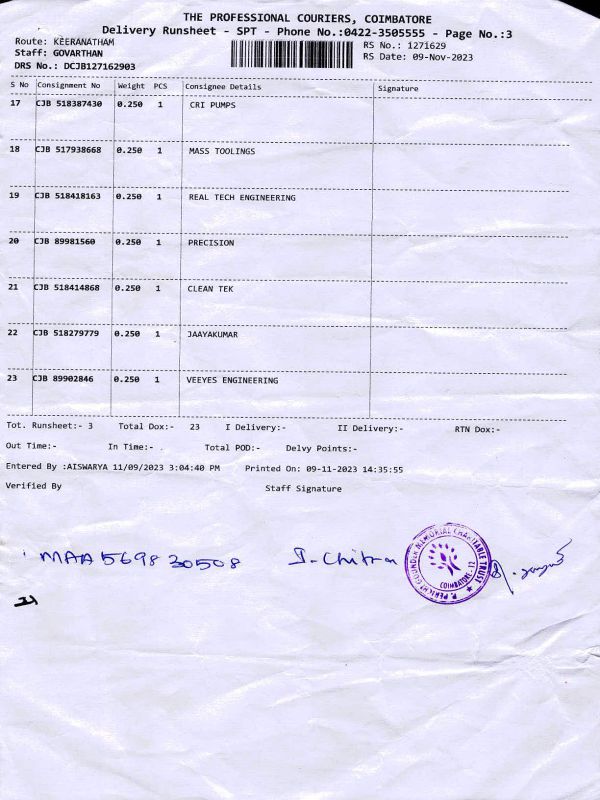 THE PROFESSIONAL COURIERS, COIMBATORE
Delivery Runsheet - SPT - Phone No.:0422-3505555 - Page No.:3
Route: KEERANATHAM RS No.: 1271629
Staff: GOVARTHAN RS Date: 09-Nov-2023
DRS No.: DCJB127162903
S No Consignment No Weight PCS Consignee Details Signature
17 CJB 518387430 0.250 1 CRI PUMPS
18 CJB 517938668 0.250 1 MASS TOOLINGS
19 CJB 518418163 0.250 1 REAL TECH ENGINEERING
20 CJB 89981560 0.250 1 PRECISION
21 CJB 518414868 0.250 1 CLEAN TEK
22 CJB 518279779 0.250 1 JAAYAKUMAR
23 CJB 89902846 0.250 1 VEEYES ENGINEERING
Tot. Runsheet:- 3 Total Dox:- 23 I Delivery:- II Delivery:- RTN Dox:-
Out Time:- In Time:- . Total POD:- Delvy Points:-
Entered By :AISWARYA 11/09/2023 3:04:40 PM Printed On: 09-11-2023 14:35:55
Verified By Staff Signature
MAA 569830508 J-Chitra
P. PERICHY GOUNDER MEMORIAL CHARITABLE TRUST
COIMBATORE-12